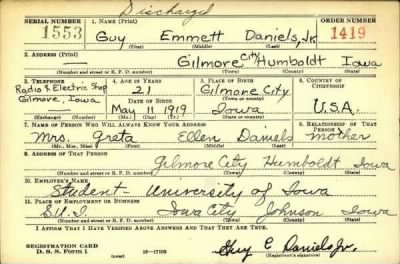 Discharged
SERIAL NUMBER 1. NAME (Print) ORDER NUMBER
1553 Guy Emmett Daniels, Jr. 1419
(First) (Middle) (Last)
2. ADDRESS (Print)
Gilmore City Humboldt Iowa
(Number and street or R. F. D. number) (Town) (County) (State)
3. TELEPHONE 4. AGE IN YEARS 5. PLACE OF BIRTH 6. COUNTRY OF CITIZENSHIP
Radio & Electric Shop 21 Gilmore City
Gilmore, Iowa DATE OF BIRTH (Town or county)
May 11 1919 Iowa U.S.A.
(Exchange) (Number) (Mo.) (Day) (Yr.) (State or country)
7. NAME OF PERSON WHO WILL ALWAYS KNOW YOUR ADDRESS 8. RELATIONSHIP OF THAT PERSON
Mrs. Greta Ellen Daniels Mother
(Mr., Mrs., Miss) (First) (Middle) (Last)
9. ADDRESS OF THAT PERSON
Gilmore City Humboldt Iowa
(Number and street or R. F. D. number) (Town) (County) (State)
10. EMPLOYER'S NAME
Student - University of Iowa
11. PLACE OF EMPLOYMENT OR BUSINESS
S.U.I. Iowa City Johnson Iowa
(Number and street or R. F. D. number) (Town) (County) (State)
I AFFIRM THAT I HAVE VERIFIED ABOVE ANSWERS AND THAT THEY ARE TRUE.
REGISTRATION CARD
D. S. S. Form 1 16-17105 Guy E. Daniels Jr.
(Registrant's signature)